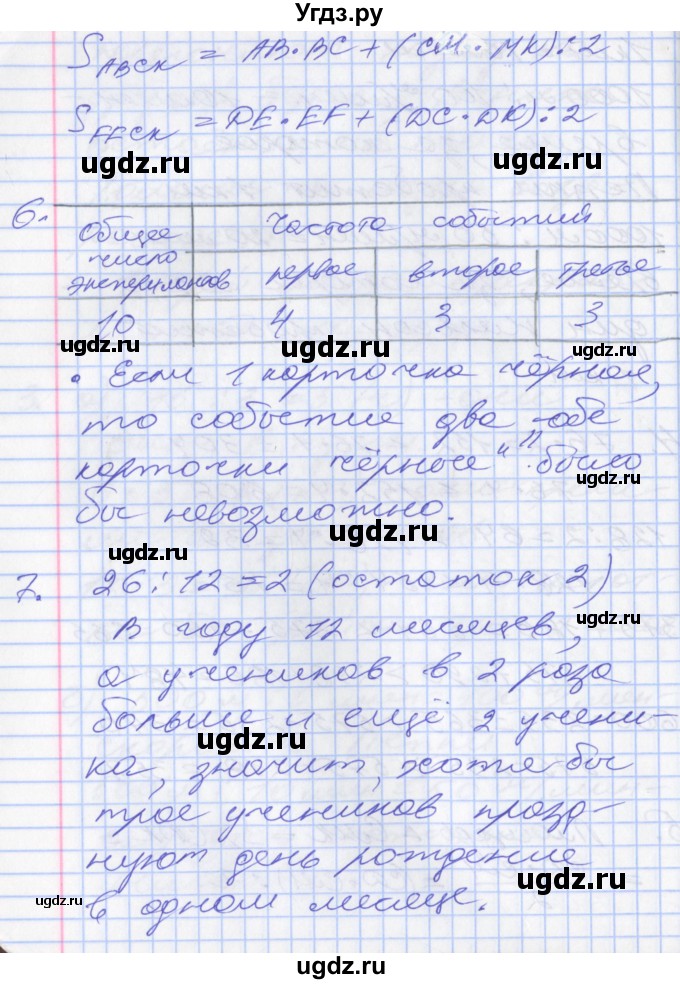 Угдз.ру
S ABCK = AB·BC + (CM·MK):2
S FECK = DE·EF + (DC·DK):2
ugdz.ru
ugdz.ru
6.
Общее число экспериментов
Частота событий
первое второе третье
10 4 3 3
ugdz.ru
ugdz.ru
• Если 1 карточка чёрная,
то событие два „обе
карточки чёрные" было
ugdz.ru
бы невозможно.
ugdz.ru
ugdz.ru
7. 26:12=2 (остаток 2)
В году 12 месяцев,
ugdz.ru
а учеников в 2 раза
больше и ещё 2 учени-
ugdz.ru
ка, значит, хотя бы
трое учеников празд-
нуют день рождение
ugdz.ru
в одном месяце.
ugdz.ru
ugdz.ru